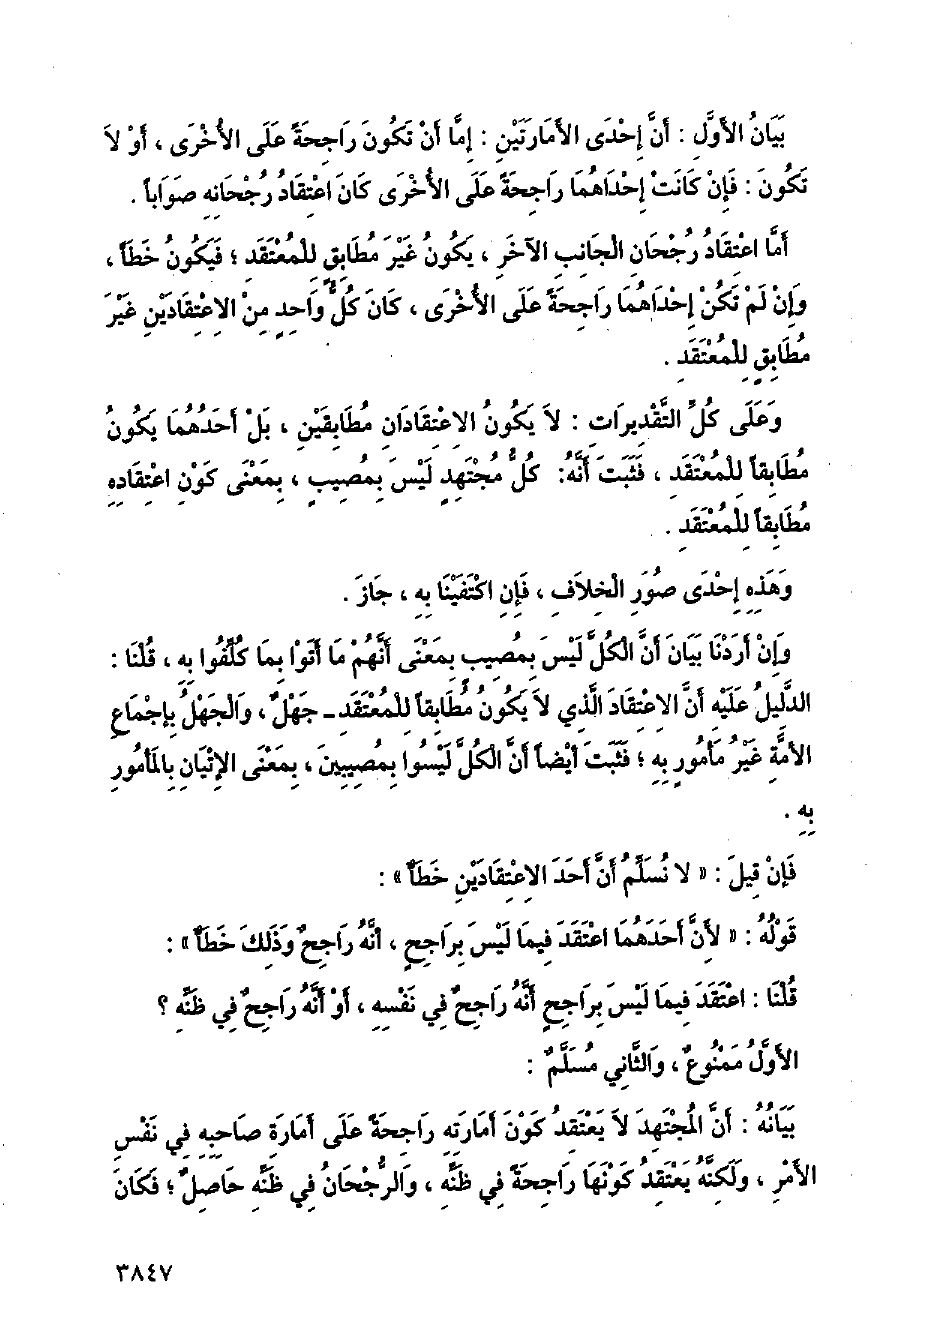 بَيَانُ الأَوَّلِ : أَنَّ إِحْدَى الأَمَارَتَيْنِ : إِمَّا أَنْ تَكُونَ رَاجِحَةً عَلَى الأُخْرَى ، أَوْ لاَ
تَكُونَ : فَإِنْ كَانَتْ إِحْدَاهُمَا رَاجِحَةً عَلَى الأُخْرَى كَانَ اعْتِقَادُ رُجْحَانِهِ صَوَاباً .
أَمَّا اعْتِقَادُ رُجْحَانِ الجَانِبِ الآخَرِ ، يَكُونُ غَيْرَ مُطَابِقٍ لِلْمُعْتَقَدِ ؛ فَيَكُونُ خَطَأً ،
وَإِنْ لَمْ تَكُنْ إِحْدَاهُمَا رَاجِحَةً عَلَى الأُخْرَى ، كَانَ كُلُّ وَاحِدٍ مِنْ الاِعْتِقَادَيْنِ غَيْرَ
مُطَابِقٍ لِلْمُعْتَقَدِ .
وَعَلَى كُلِّ التَّقْدِيرَاتِ : لاَ يَكُونُ الاِعْتِقَادَانِ مُطَابِقَيْنِ ، بَلْ أَحَدُهُمَا يَكُونُ
مُطَابِقاً لِلْمُعْتَقَدِ ، فَثَبَتَ أَنَّهُ: كُلُّ مُجْتَهِدٍ لَيْسَ بِمُصِيبٍ ، بِمَعْنَى كَوْنِ اعْتِقَادِهِ
مُطَابِقاً لِلْمُعْتَقَدِ .
وَهَذِهِ إِحْدَى صُوَرِ الْخِلاَفِ ، فَإِنِ اكْتَفَيْنَا بِهِ ، جَازَ .
وَإِنْ أَرَدْنَا بَيَانَ أَنَّ الْكُلَّ لَيْسَ بِمُصِيبٍ بِمَعْنَى أَنَّهُمْ مَا أَتَوْا بِمَا كُلِّفُوا بِهِ ، قُلْنَا :
الدَّلِيلُ عَلَيْهِ أَنَّ الاِعْتِقَادَ الَّذِي لاَ يَكُونُ مُطَابِقاً لِلْمُعْتَقَدِ ـ جَهْلٌ ، وَالْجَهْلُ بِإِجْمَاعِ
الأُمَّةِ غَيْرُ مَأْمُورٍ بِهِ ؛ فَثَبَتَ أَيْضاً أَنَّ الكُلَّ لَيْسُوا بِمُصِيبِينَ ، بِمَعْنَى الإِتْيَانِ بِالمَأْمُورِ
بِهِ .
فَإِنْ قِيلَ : « لا نُسَلِّمُ أَنَّ أَحَدَ الاِعْتِقَادَيْنِ خَطَأٌ » :
قَوْلُهُ : « لأَنَّ أَحَدَهُمَا اعْتَقَدَ فِيمَا لَيْسَ بِرَاجِحٍ ، أَنَّهُ رَاجِحٌ وَذَلِكَ خَطَأٌ » :
قُلْنَا : اعْتَقَدَ فِيمَا لَيْسَ بِرَاجِحٍ أَنَّهُ رَاجِحٌ فِي نَفْسِهِ ، أَوْ أَنَّهُ رَاجِحٌ فِي ظَنِّهِ ؟
الأَوَّلُ مَمْنُوعٌ ، وَالثَّانِي مُسَلَّمٌ :
بَيَانُهُ : أَنَّ المُجْتَهِدَ لاَ يَعْتَقِدُ كَوْنَ أَمَارَتِهِ رَاجِحَةً عَلَى أَمَارَةِ صَاحِبِهِ فِي نَفْسِ
الأَمْرِ ، وَلَكِنَّهُ يَعْتَقِدُ كَوْنَهَا رَاجِحَةً فِي ظَنِّهِ ، وَالرُّجْحَانُ فِي ظَنِّهِ حَاصِلٌ ؛ فَكَانَ
٣٨٤٧